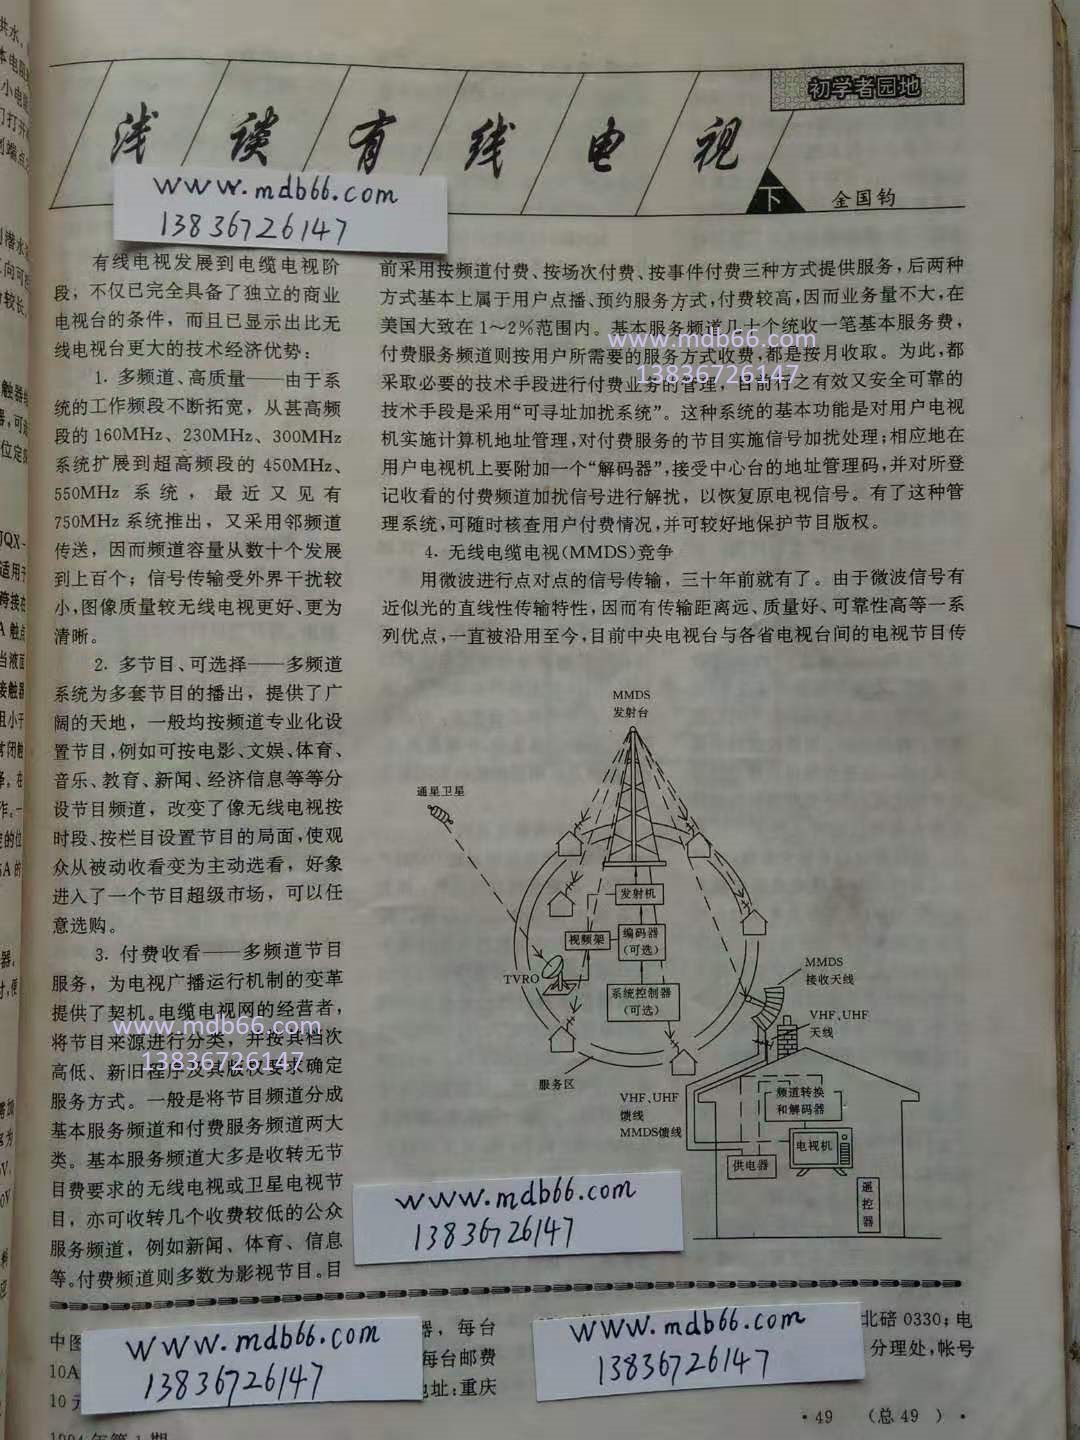 初学者园地
浅谈有线电视
下
金国钧
www.mdb66.com
13836726147
有线电视发展到电缆电视阶
段，不仅已完全具备了独立的商业
电视台的条件，而且已显示出比无
线电视台更大的技术经济优势：
1. 多频道、高质量——由于系
统的工作频段不断拓宽，从甚高频
段的 160MHz、230MHz、300MHz
系统扩展到超高频段的 450MHz、
550MHz 系统，最近又见有
750MHz 系统推出，又采用邻频道
传送，因而频道容量从数十个发展
到上百个；信号传输受外界干扰较
小，图像质量较无线电视更好、更为
清晰。
2. 多节目、可选择——多频道
系统为多套节目的播出，提供了广
阔的天地，一般均按频道专业化设
置节目，例如可按电影、文娱、体育、
音乐、教育、新闻、经济信息等等分
设节目频道，改变了像无线电视按
时段、按栏目设置节目的局面，使观
众从被动收看变为主动选看，好象
进入了一个节目超级市场，可以任
意选购。
3. 付费收看——多频道节目
服务，为电视广播运行机制的变革
提供了契机。电缆电视网的经营者，
www.mdb66.com
将节目来源进行分类，并按其档次
13836726147
高低、新旧程序及其版权要求确定
服务方式。一般是将节目频道分成
基本服务频道和付费服务频道两大
类。基本服务频道大多是收转无节
目费要求的无线电视或卫星电视节
目，亦可收转几个收费较低的公众
服务频道，例如新闻、体育、信息
等。付费频道则多数为影视节目。目
前采用按频道付费、按场次付费、按事件付费三种方式提供服务，后两种
方式基本上属于用户点播、预约服务方式，付费较高，因而业务量不大，在
美国大致在 1～2%范围内。基本服务频道几十个统收一笔基本服务费，
www.mdb66.com
付费服务频道则按用户所需要的服务方式收费，都是按月收取。为此，都
13836726147
采取必要的技术手段进行付费业务的管理，目前行之有效又安全可靠的
技术手段是采用“可寻址加扰系统”。这种系统的基本功能是对用户电视
机实施计算机地址管理，对付费服务的节目实施信号加扰处理；相应地在
用户电视机上要附加一个“解码器”，接受中心台的地址管理码，并对所登
记收看的付费频道加扰信号进行解扰，以恢复原电视信号。有了这种管
理系统，可随时核查用户付费情况，并可较好地保护节目版权。
4. 无线电缆电视(MMDS)竞争
用微波进行点对点的信号传输，三十年前就有了。由于微波信号有
近似光的直线性传输特性，因而有传输距离远、质量好、可靠性高等一系
列优点，一直被沿用至今，目前中央电视台与各省电视台间的电视节目传
MMDS
发射台
通星卫星
发射机
视频架
编码器
(可选)
TVRO
系统控制器
(可选)
服务区
MMDS
接收天线
VHF、UHF
天线
VHF、UHF
馈线
MMDS馈线
频道转换
和解码器
电视机
供电器
遥控器
www.mdb66.com
13836726147
中图
器，每台
10A
每台邮费
10元
地址：重庆
www.mdb66.com
13836726147
www.mdb66.com
13836726147
北碚 0330；电
分理处，帐号
·49 （总 49 ）·
1994 年第 1 期